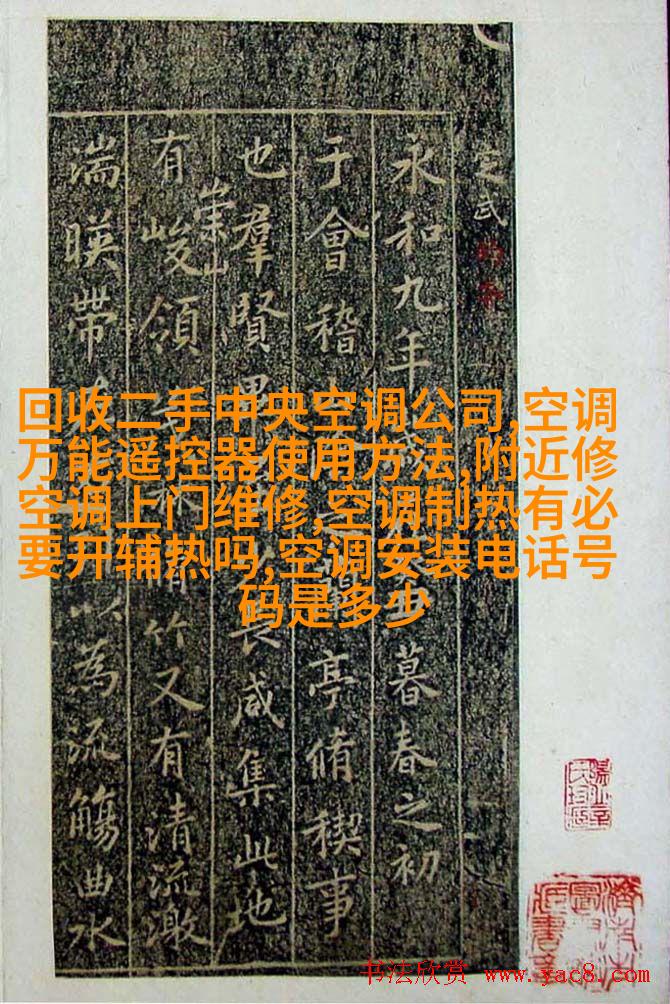 回收二手中央空调公司,空调
万能遥控器使用方法,附近修
空调上门维修,空调制热有必
要开辅热吗,空调安装电话号
码是多少
定武
永和九年暮春之初
于會稽亭脩稧事
也羣賢畢長咸集此地
崇山
有峻領竹又有清流激
湍暎帶以為流觴曲水
书法欣赏 www.yac8.com